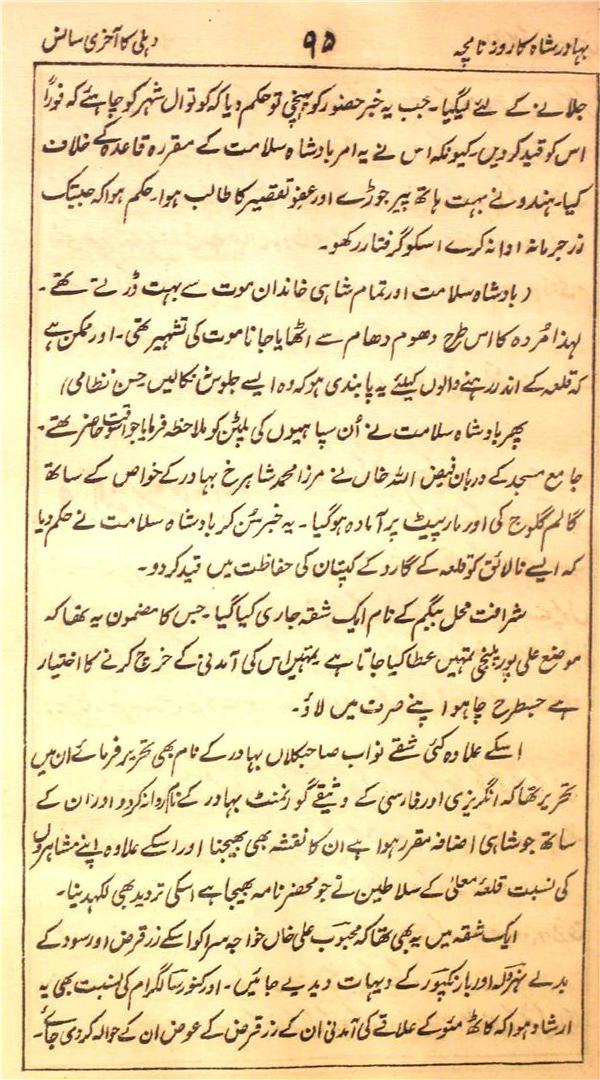 بہادر شاہ کا روزنامچہ ۹۵ دہلی کا آخری سانس
جلانے کے لئے لیگیا۔ جب یہ خبر حضور کو پہنچی تو حکم دیا کہ کوتوال شہر کو چاہئے کہ فوراً
اس کو قید کر دیں۔ کیونکہ اس نے یہ امر بادشاہ سلامت کے مقررہ قاعدہ کے خلاف
کیا۔ ہندو نے بہت ہاتھ پیر جوڑے اور عفو تقصیر کا طالب ہوا۔ حکم ہوا کہ جبتک
زر جرمانہ ادا نہ کرے اسکو گرفتار رکھو۔
(بادشاہ سلامت اور تمام شاہی خاندان موت سے بہت ڈرتے تھے۔
لہذا مُردہ کا اس طرح دھوم دھام سے اٹھایا جانا موت کی تشہیر تھی۔ اور ممکن ہے
کہ قلعہ کے اندر رہنے والوں کیلئے یہ پابندی ہو کہ وہ ایسے جلوس نکالیں حسن نظامی)
پھر بادشاہ سلامت نے اُن سپاہیوں کی پلٹن کو ملاحظہ فرمایا جو اسوقت حاضر تھے۔
جامع مسجد کے دربان فیض اللہ خاں نے مرزا محمد شاہرخ بہادر کے خواص کے ساتھ
گالم گلوج کی اور مار پیٹ پر آمادہ ہو گیا۔ یہ خبر سُن کر بادشاہ سلامت نے حکم دیا
کہ ایسے نالائق کو قلعہ کے گارد کے کپتان کی حفاظت میں قید کر دو۔
شرافت محل بیگم کے نام ایک شقہ جاری کیا گیا۔ جس کا مضمون یہ تھا کہ
موضع علی پور تمہیں عطا کیا جاتا ہے۔ تمہیں اس کی آمدنی کے خرچ کرنے کا اختیار
ہے جسطرح چاہو اپنے صرف میں لاؤ۔
اسکے علاوہ کئی شقے نواب صاحب کلاں بہادر کے نام بھی تحریر فرمائے ان میں
تحریر تھا کہ انگریزی اور فارسی کے وثیقے گورنمنٹ بہادر کے نام روانہ کر دو اور ان کے
ساتھ جو شاہی اضافہ مقرر ہوا ہے ان کا نقشہ بھی بھیجنا اور اسکے علاوہ اپنے مشاہروں
کی نسبت قلعۂ معلیٰ کے سلاطین نے جو محضر نامہ بھیجا ہے اسکی تردید بھی لکھدینا۔
ایک شقہ میں یہ بھی تھا کہ محبوب علی خاں خواجہ سرا کو اسکے زر قرض اور سود کے
بدلے اور بانکپور کے دیہات دیدیے جائیں۔ اور کنور سالگرام کی نسبت بھی یہ
ارشاد ہوا کہ کاٹھ مئو کے علاقے کی آمدنی ان کے زر قرض کے عوض ان کے حوالہ کر دی جائے۔